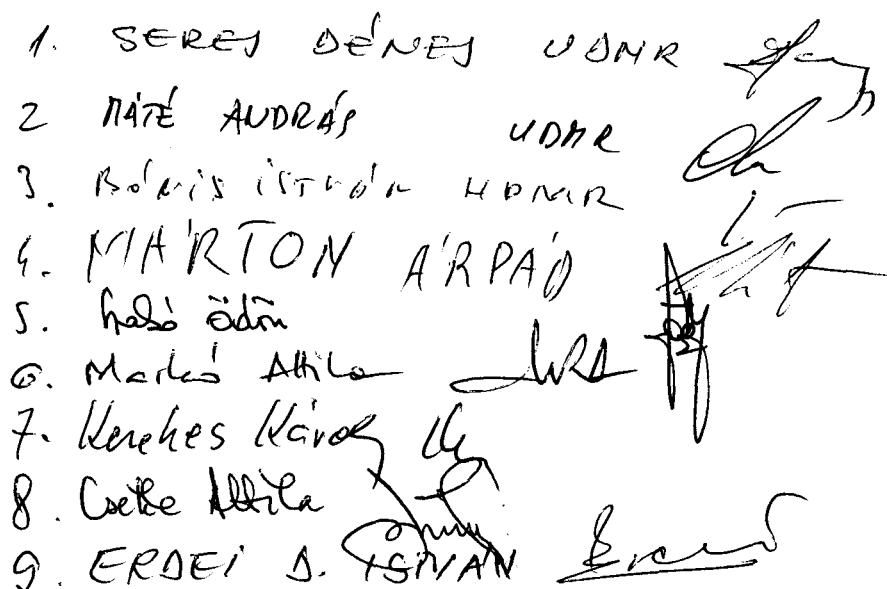 1. SERES DÉNES UDMR
2 MÁTÉ ANDRÁS UDMR
3. BÓRIS ISTVÁN UDMR
4. MÁRTON ÁRPÁD
5. Szabó Ödön
6. Markó Attila
7. Kerekes Károly
8. Cseke Attila
9. ERDEI D. ISTVÁN